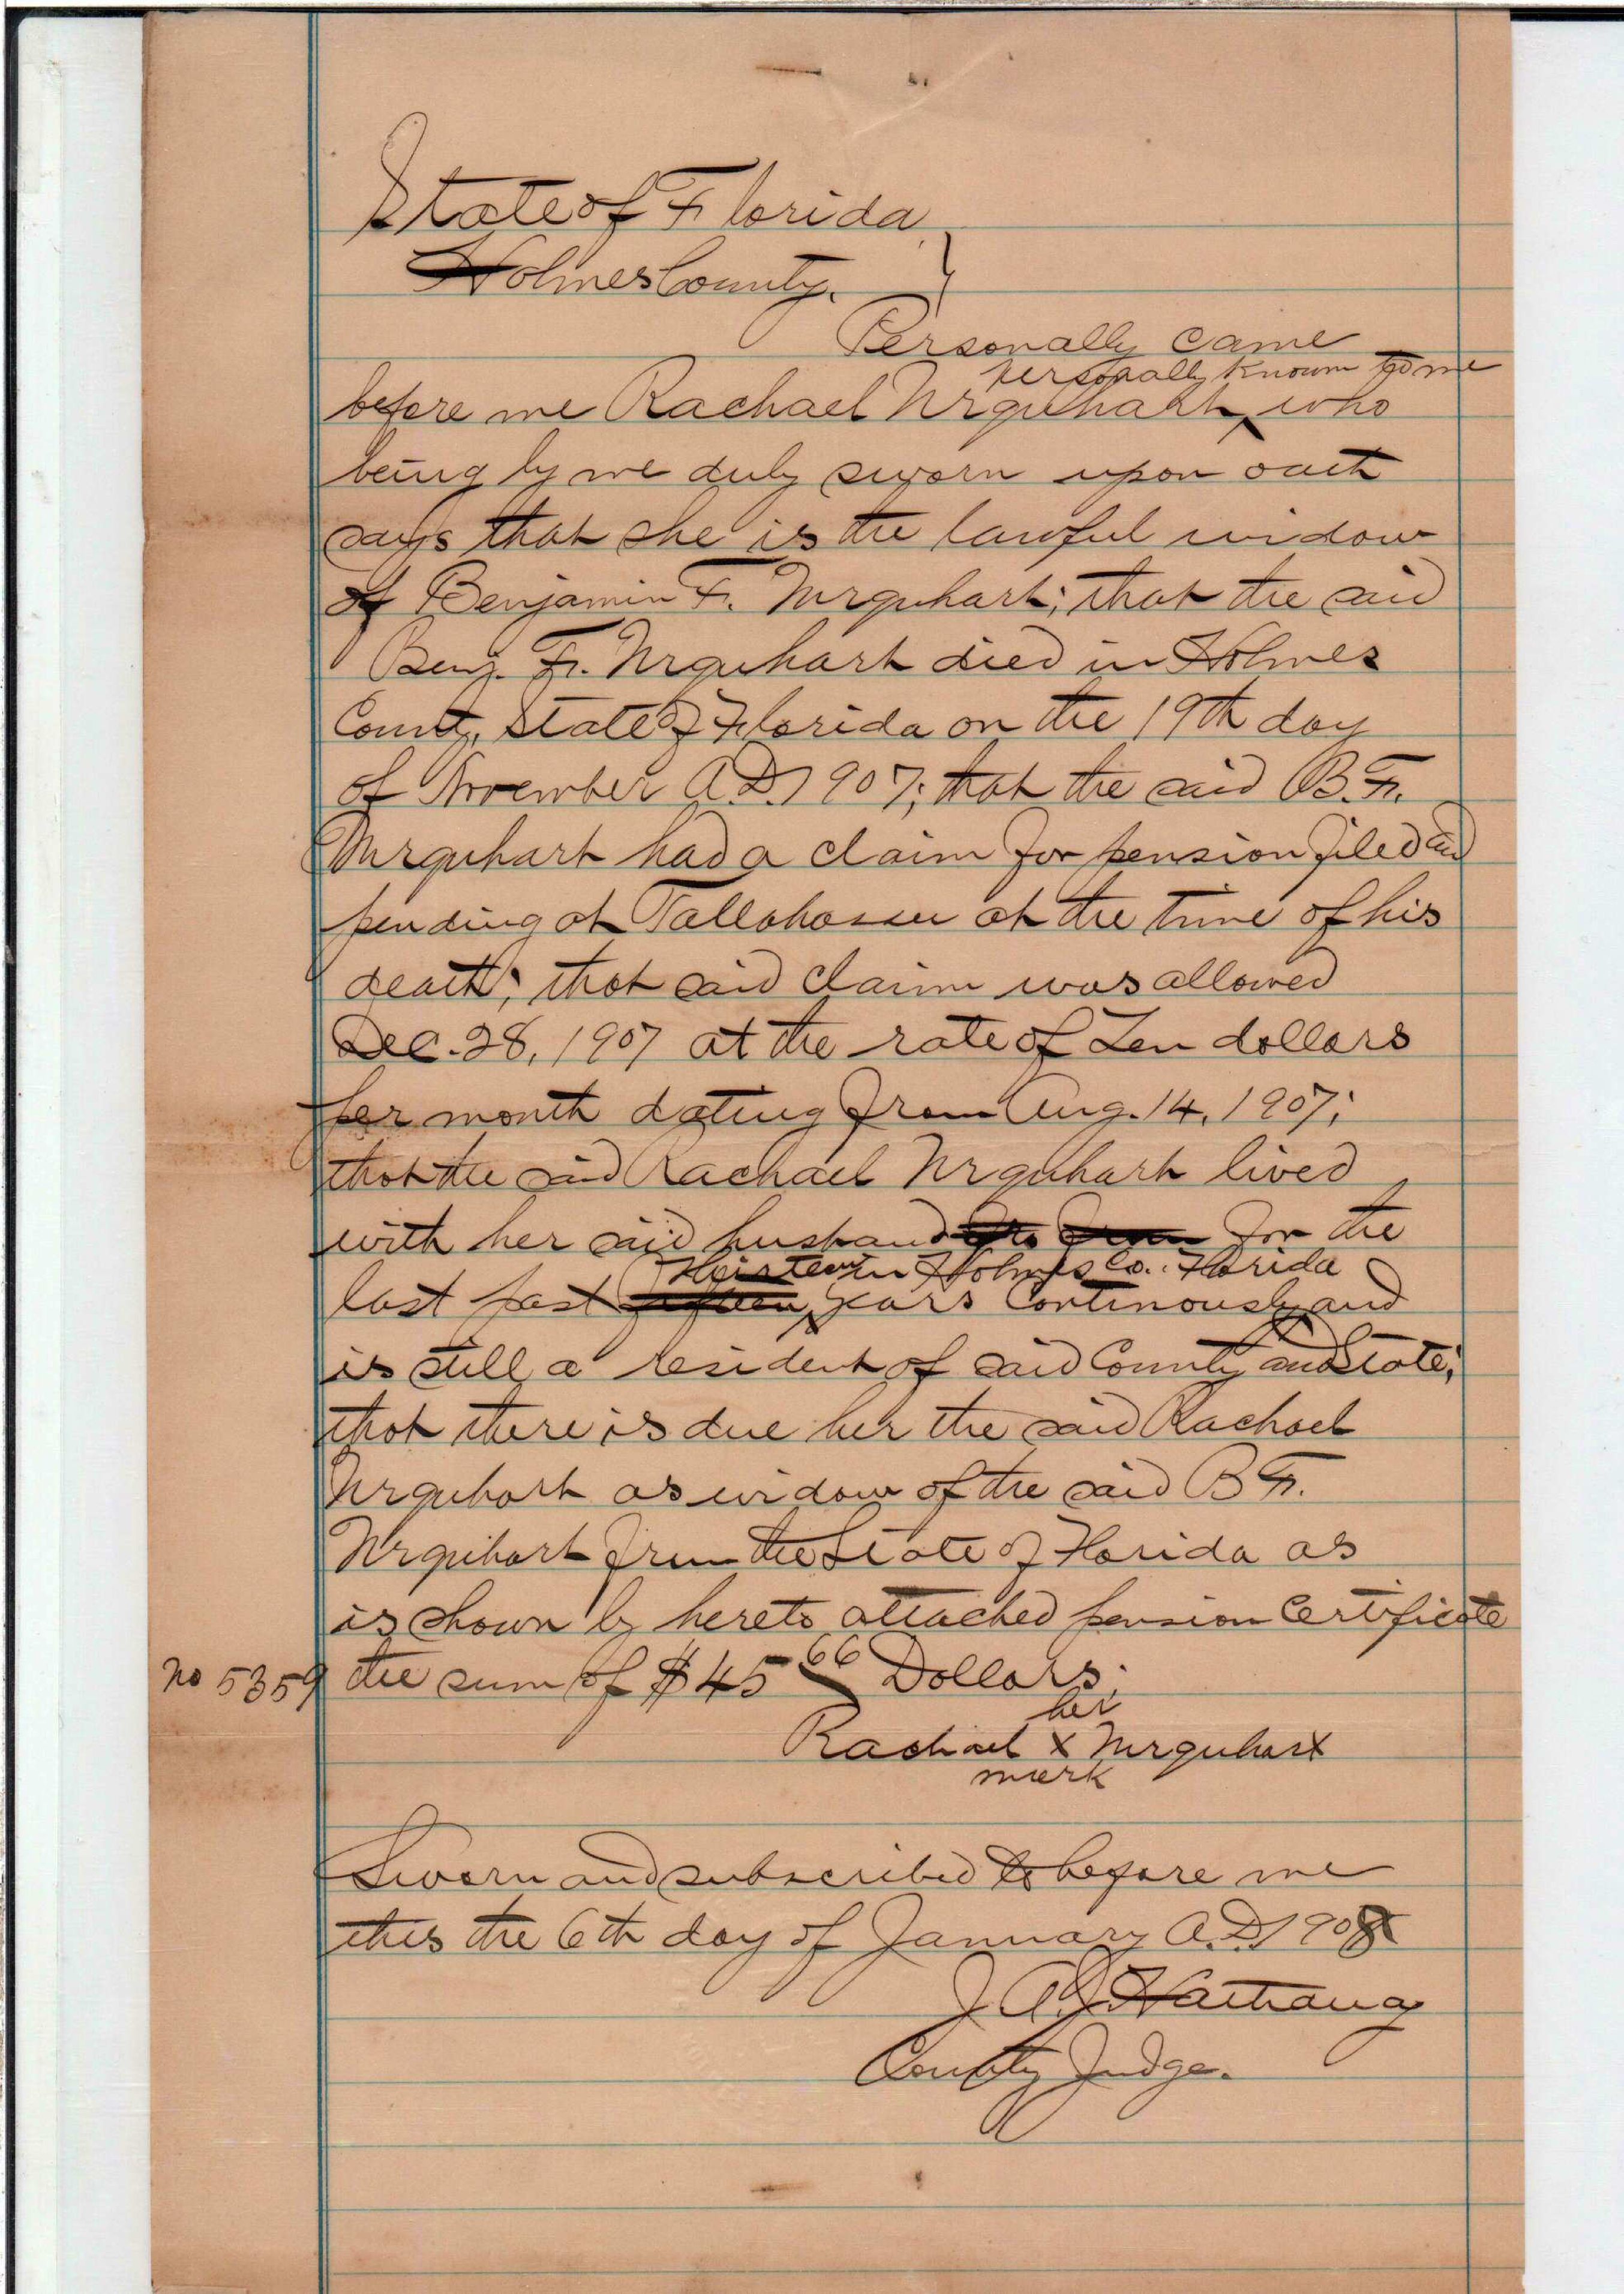 State of Florida }
Holmes County. }
Personally came
personally known to me
before me Rachael Urquhart ^ who
being by me duly sworn upon oath
says that she is the lawful widow
of Benjamin F. Urquhart; that the said
Benj. F. Urquhart died in Holmes
County, State of Florida on the 19th day
of November A.D. 1907; that the said B.F.
Urquhart had a claim for pension filed and
pending at Tallahassee at the time of his
death; that said claim was allowed
Dec. 28, 1907 at the rate of Ten dollars
per month dating from Aug. 14, 1907;
that the said Rachael Urquhart lived
with her said husband for the
Thirteen in Holmes Co. Florida
last past fifteen ^ years Continously and
is still a resident of said County and State;
that there is due her the said Rachael
Urquhart as widow of the said B F.
Urquhart from the State of Florida as
is shown by hereto attached pension Certificate
No 5359 the sum of $45 66 Dollars.
her
Rachael x Urquhart
mark
Sworn and subscribed to before me
this the 6th day of January A.D. 1908
J.A.J. Hathaway
County Judge.